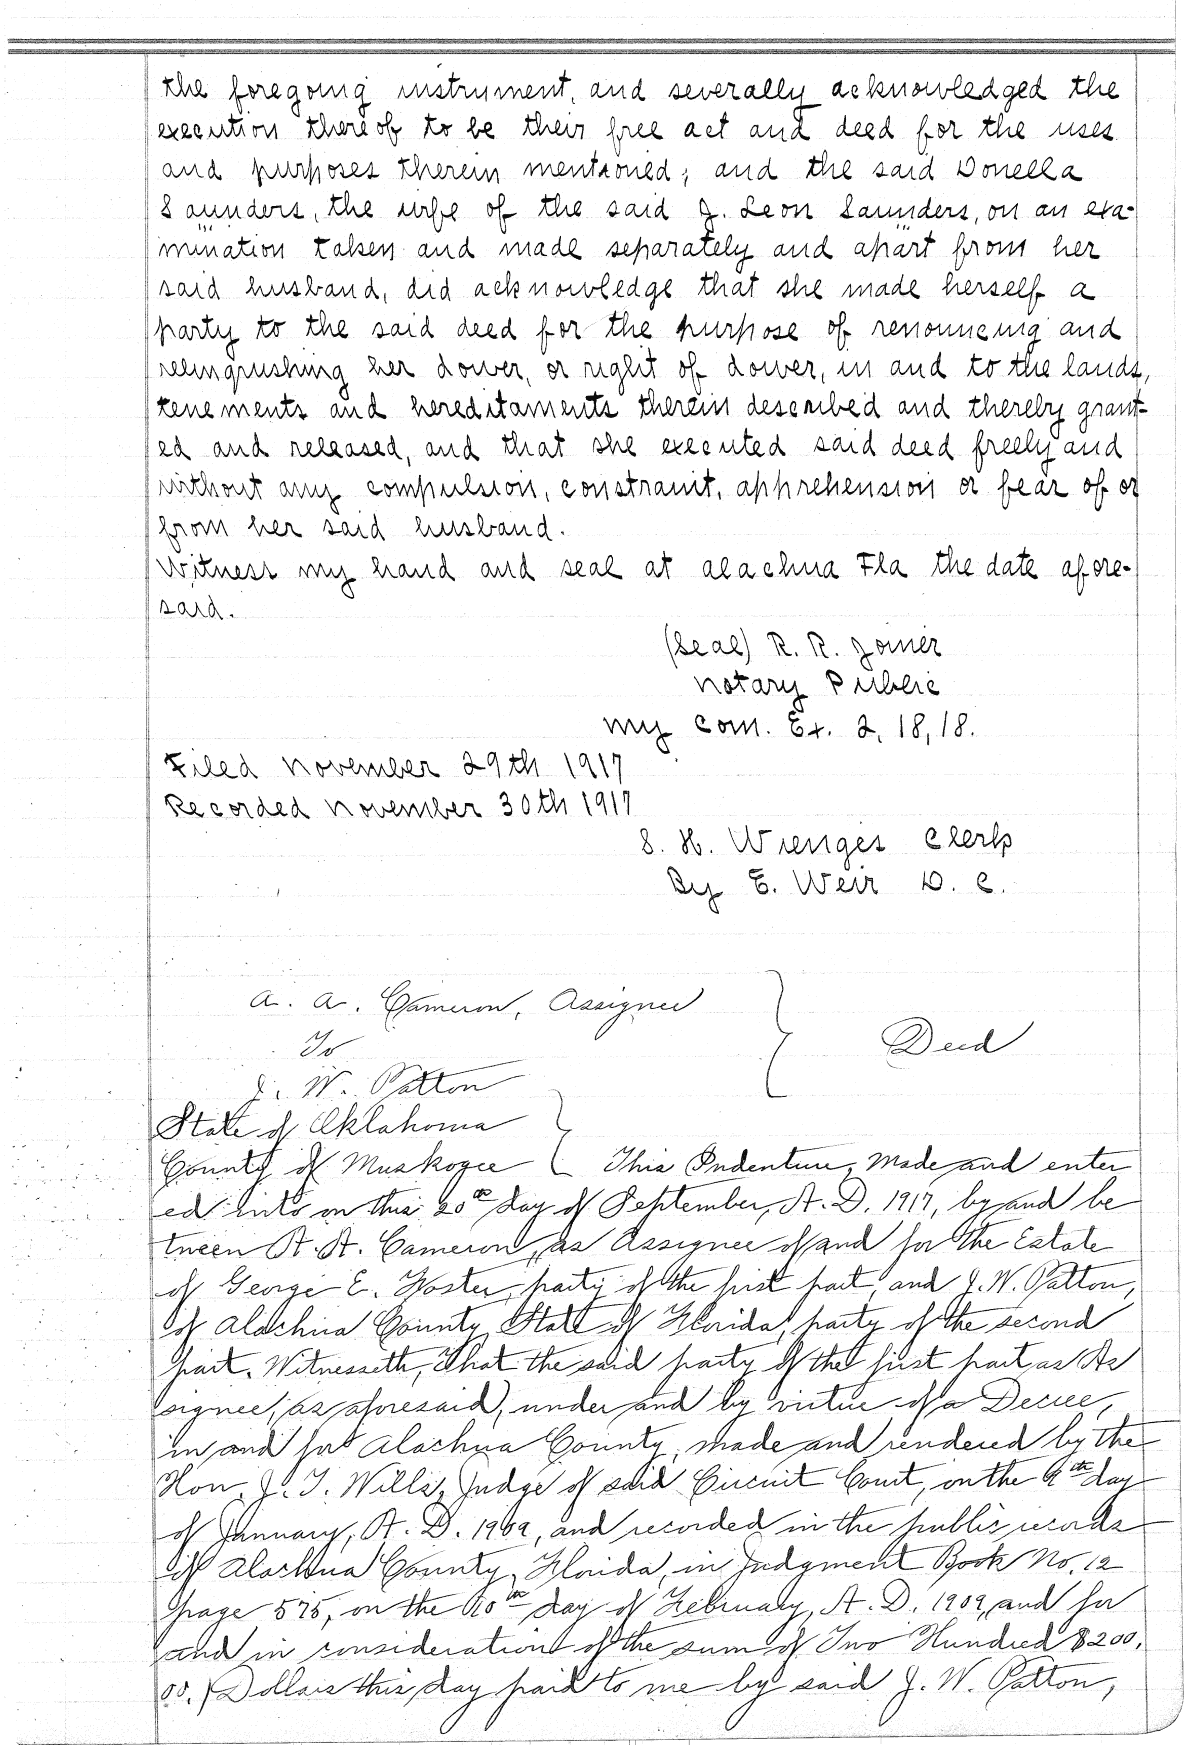 the foregoing instrument, and severally acknowledged the
execution thereof to be their free act and deed for the uses
and purposes therein mentioned; and the said Donella
Saunders, the wife of the said J. Leon Saunders, on an exa-
mination taken and made separately and apart from her
said husband, did acknowledge that she made herself a
party to the said deed for the purpose of renouncing and
relinquishing her dower, or right of dower, in and to the lands,
tenements and hereditaments therein described and thereby grant-
ed and released, and that she executed said deed freely and
without any compulsion, constraint, apprehension or fear of or
from her said husband.
Witness my hand and seal at alachua Fla the date afore-
said.
(Seal) R. R. Joiner
Notary Public
my com. Ex. 2, 18, 18.
Filed November 29th 1917
Recorded November 30th 1917
S. H. Wienges Clerk
By E. Weir D. C.
A. A. Cameron, Assignee
To
J. W. Patton
Deed
State of Oklahoma
County of Muskogee This Indenture, Made and enter
ed into on this 20th day of September, A. D. 1917, by and be
tween A. A. Cameron, as Assignee of and for the Estate
of George E. Foster, party of the first part, and J. W. Patton,
of Alachua County, State of Florida, party of the second
part. Witnesseth, That the said party of the first part, as As
signee, as aforesaid, under and by virtue of a Decree,
in and for Alachua County, made and rendered by the
Hon. J. T. Wills, Judge of said Circuit Court, on the 9th day
of January, A. D. 1909, and recorded in the public records
of Alachua County, Florida, in Judgment Book No. 12
page 575, on the 10th day of February, A. D. 1909, and for
and in consideration of the sum of Two Hundred $200.
00.) Dollars this day paid to me by said J. W. Patton,